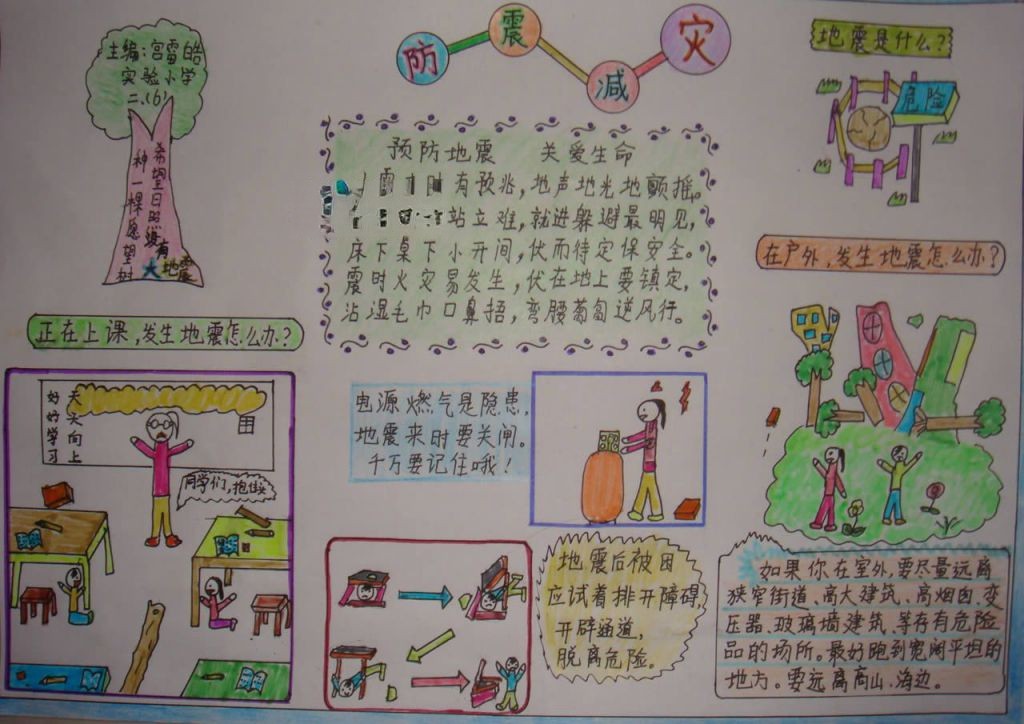 防震减灾
主编:宫雷皓
实验小学
二.(6)
希望日照没有大地震
种一棵愿望树
预防地震 关爱生命
有预兆,地声地光地颤摇。
站立难,就进躲避最明见,
床下桌下小开间,伏而待定保安全。
震时火灾易发生,伏在地上要镇定,
沾湿毛巾口鼻捂,弯腰匍匐逆风行。
地震是什么?
危险
在户外,发生地震怎么办?
正在上课,发生地震怎么办?
好好学习
天天向上
同学们,抱住头
电源燃气是隐患,
地震来时要关闸。
千万要记住哦!
地震后被困
应试着排开障碍,
开辟通道,
脱离危险。
如果你在室外,要尽量远离
狭窄街道、高大建筑、高烟囱、变
压器、玻璃墙建筑、等存有危险
品的场所。最好跑到宽阔平坦的
地方。要远离高山、海边。